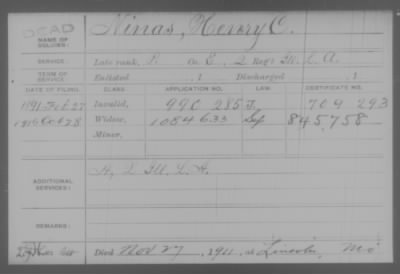 DEAD
NAME OF SOLDIER: Ninas, Henry C.
SERVICE: Late rank, P. Co. E, 2 Reg't Ill. L. A.
TERM OF SERVICE: Enlisted , 1 Discharged , 1
DATE OF FILING. CLASS. APPLICATION NO. LAW. CERTIFICATE NO.
1891 Feb 27 Invalid, 990 285 J. 709 293
Widow, 1084 633 845,758
Minor,
ADDITIONAL SERVICES: Ill. L. A.
REMARKS:
Died Nov. 27, 1911, at Lincoln, Mo